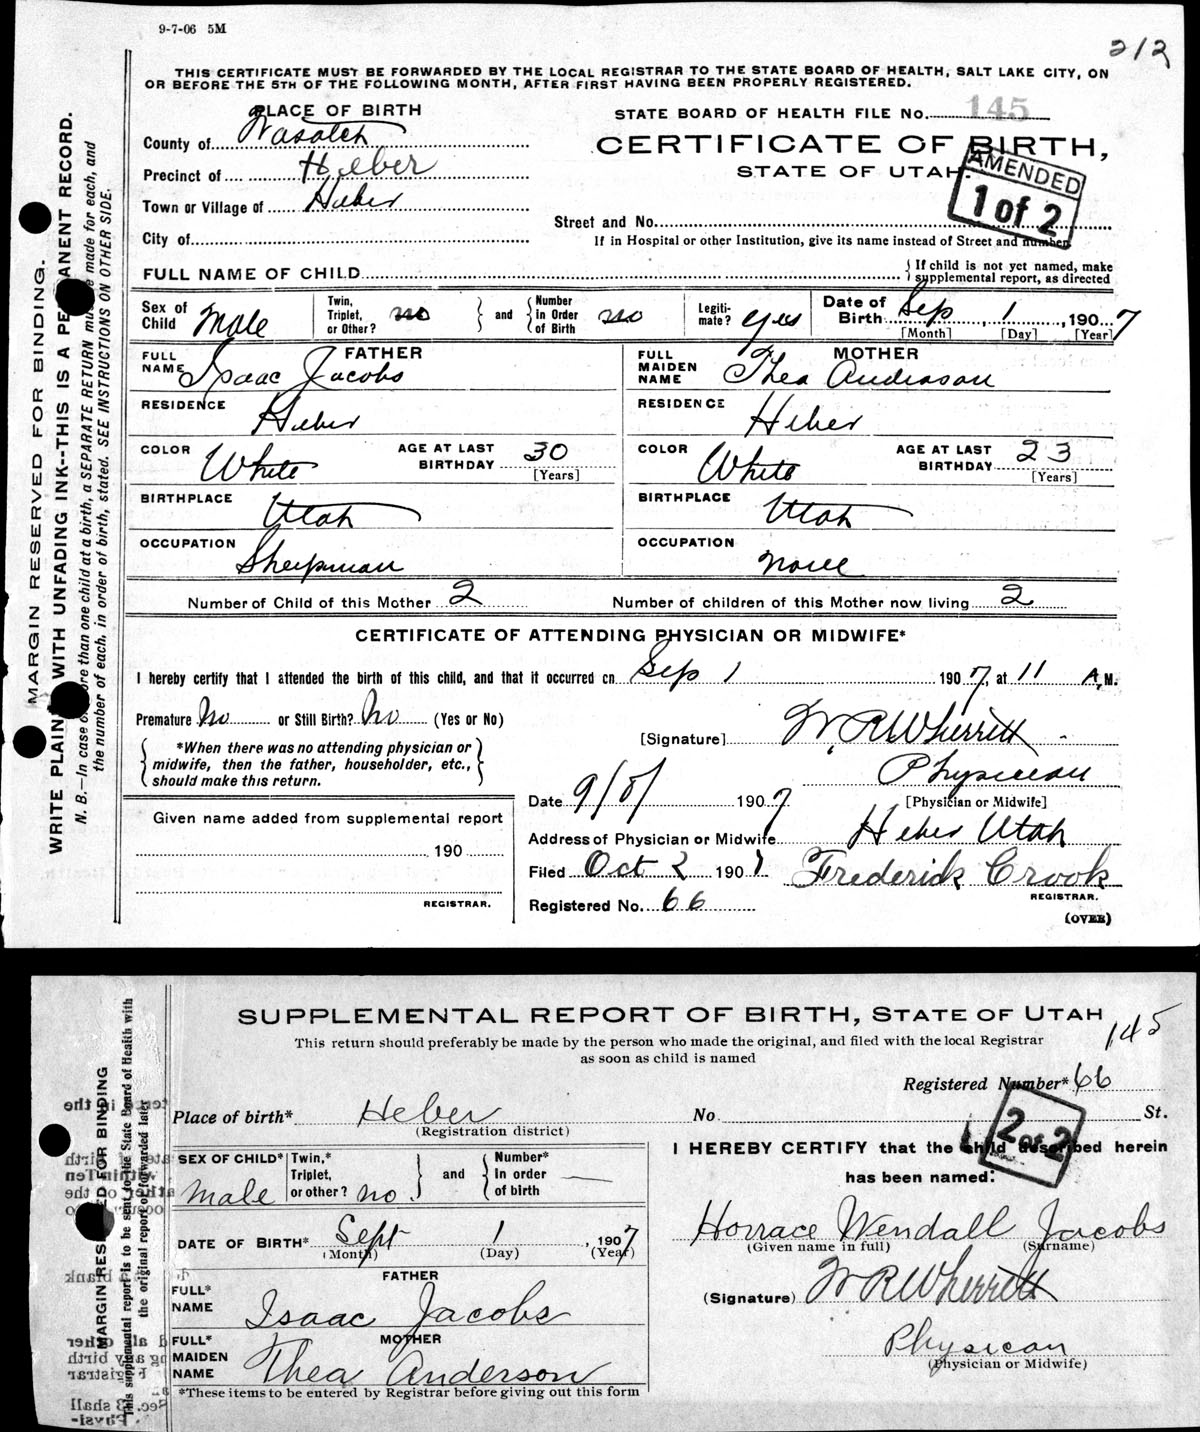 9-7-06 5M
212
THIS CERTIFICATE MUST BE FORWARDED BY THE LOCAL REGISTRAR TO THE STATE BOARD OF HEALTH, SALT LAKE CITY, ON
OR BEFORE THE 5TH OF THE FOLLOWING MONTH, AFTER FIRST HAVING BEEN PROPERLY REGISTERED.
PLACE OF BIRTH
STATE BOARD OF HEALTH FILE No. 145
County of Wasatch
CERTIFICATE OF BIRTH,
STATE OF UTAH.
AMENDED
1 of 2
Precinct of Heber
Town or Village of Heber
Street and No.
If in Hospital or other Institution, give its name instead of Street and number.
City of
FULL NAME OF CHILD
If child is not yet named, make
supplemental report, as directed
Sex of Child Male
Twin, Triplet, or Other? no
and
Number in Order of Birth no
Legiti-mate? yes
Date of Birth Sep, 1, 1907
[Month] [Day] [Year]
FATHER
FULL NAME Isaac Jacobs
MOTHER
FULL MAIDEN NAME Thea Andrason
RESIDENCE Heber
RESIDENCE Heber
COLOR White
AGE AT LAST BIRTHDAY 30
[Years]
COLOR White
AGE AT LAST BIRTHDAY 23
[Years]
BIRTHPLACE Utah
BIRTHPLACE Utah
OCCUPATION Sheepman
OCCUPATION None
Number of Child of this Mother 2
Number of children of this Mother now living 2
CERTIFICATE OF ATTENDING PHYSICIAN OR MIDWIFE*
I hereby certify that I attended the birth of this child, and that it occurred on Sep 1 1907, at 11 A.M.
Premature No or Still Birth? No (Yes or No)
[Signature] W. R. Wherritt
*When there was no attending physician or
midwife, then the father, householder, etc.,
should make this return.
Physician
[Physician or Midwife]
Date 9/8/ 1907
Given name added from supplemental report
190
REGISTRAR.
Address of Physician or Midwife Heber Utah
Filed Oct 2 1907 Frederick Crook
REGISTRAR.
Registered No. 66
(OVER)
MARGIN RESERVED FOR BINDING.
WRITE PLAINLY WITH UNFADING INK--THIS IS A PERMANENT RECORD.
N. B.—In case of more than one child at a birth, a SEPARATE RETURN must be made for each, and
the number of each, in order of birth, stated. SEE INSTRUCTIONS ON OTHER SIDE.
SUPPLEMENTAL REPORT OF BIRTH, STATE OF UTAH
145
This return should preferably be made by the person who made the original, and filed with the local Registrar
as soon as child is named
Registered Number* 66
Place of birth* Heber
(Registration district)
No. St.
2 of 2
SEX OF CHILD* Male
Twin,* Triplet, or other? no.
and
Number* In order of birth
I HEREBY CERTIFY that the child described herein
has been named:
DATE OF BIRTH* Sept 1, 1907
(Month) (Day) (Year)
Horrace Wendall Jacobs
(Given name in full) (Surname)
FATHER
FULL* NAME Isaac Jacobs
(Signature) W R Wherritt
MOTHER
FULL* MAIDEN NAME Thea Anderson
Physican
(Physician or Midwife)
*These items to be entered by Registrar before giving out this form
MARGIN RESERVED FOR BINDING
This supplemental report is to be sent to the State Board of Health with
the original report or forwarded later